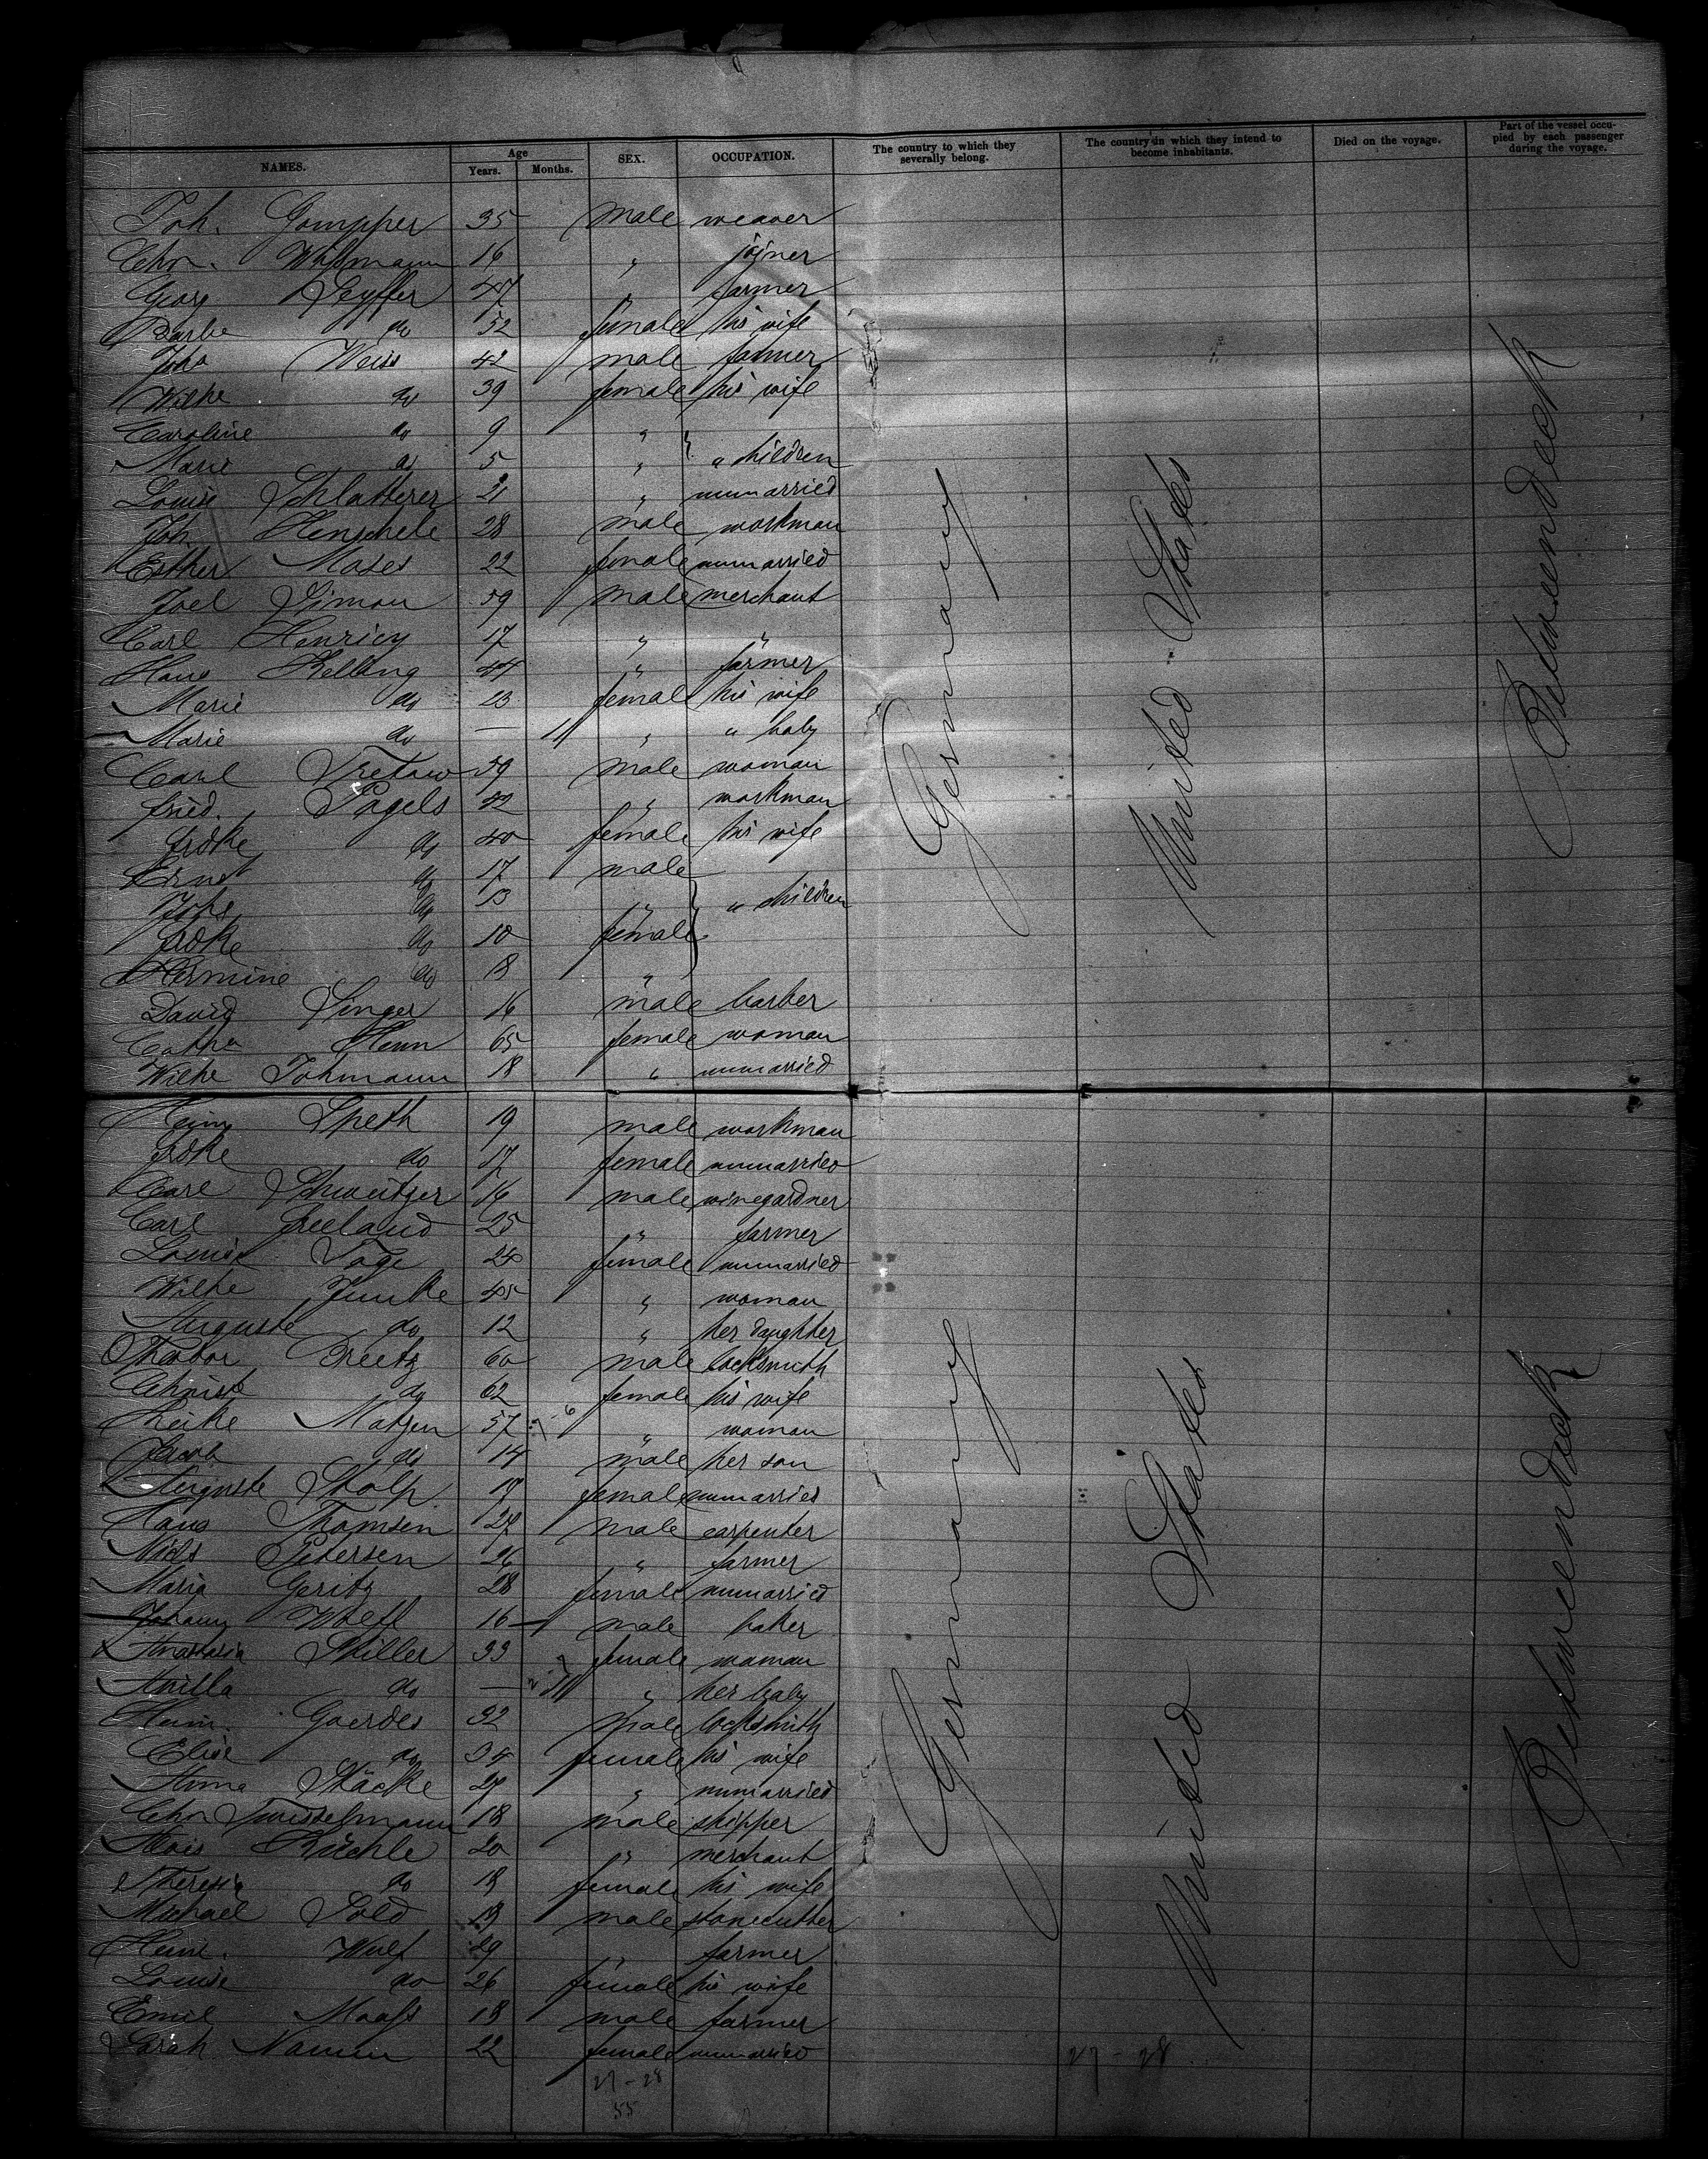 NAMES. Age Years. Months. SEX. OCCUPATION. The country to which they severally belong. The country in which they intend to become inhabitants. Died on the voyage. Part of the vessel occupied by each passenger during the voyage.
Joh. Gompper 35 male weaver
Chr. 16 " joyner
Georg Seyffer 47 " farmer
Barba do 52 female his wife
Joha Weiss 42 male farmer
Wilhe do 39 female his wife
Caroline do 9 "
Marie do 5 " " children
Louise Schlatterer 21 " unmarried
Joh. Henschele 28 male workman
Esther Moses 22 female unmarried
Joel Simon 59 male merchant
Carl Henricy 17 " "
Hans Kelling 44 " farmer
Marie do 23 female his wife
Marie do — 11 " " baby
Carl 59 male woman
Fried. Pagels 42 " workman
Fröke do 40 female his wife
Ernst do 17 male
Johs do 13 " " children
Fröke do 10 female
Hermine do 8 "
David Singer 16 male barber
Catha Henn 65 female woman
Wilhe Johmann 18 " unmarried
Heinr Speth 19 male workman
Fröke do 17 female unmarried
Carl Schweitzer 16 male winegardner
Carl Freeland 25 " farmer
Louise Voge 24 female unmarried
Wilhe Funke 45 " woman
Auguste do 12 " her daughter
Theodor Breetz 60 male locksmith
Christe do 62 female his wife
Matzen 57 " woman
Jacob do 14 male her son
Auguste Stolp 19 female unmarried
Hans Thomsen 27 male carpenter
Niels Petersen 26 " farmer
Maria Geritz 28 female unmarried
Johann Wolff 16 male baker
Anastasia Stiller 33 female woman
do — 11 " her baby
Heinr. Goerdes 32 male locksmith
Elise do 34 female his wife
Anna Stäcke 27 " unmarried
Chr Twisselmann 18 male skipper
Alois Büchle 20 " merchant
Theresia do 18 female his wife
Michael Sold 19 male stonecutter
Heinr. Wulf 29 " farmer
Louise do 26 female his wife
Emil Maass 18 male farmer
Sarah 22 female unmarried
27 - 28
55
27 - 28
Germany
United States
Betweendeck
Germany
United States
Betweendeck